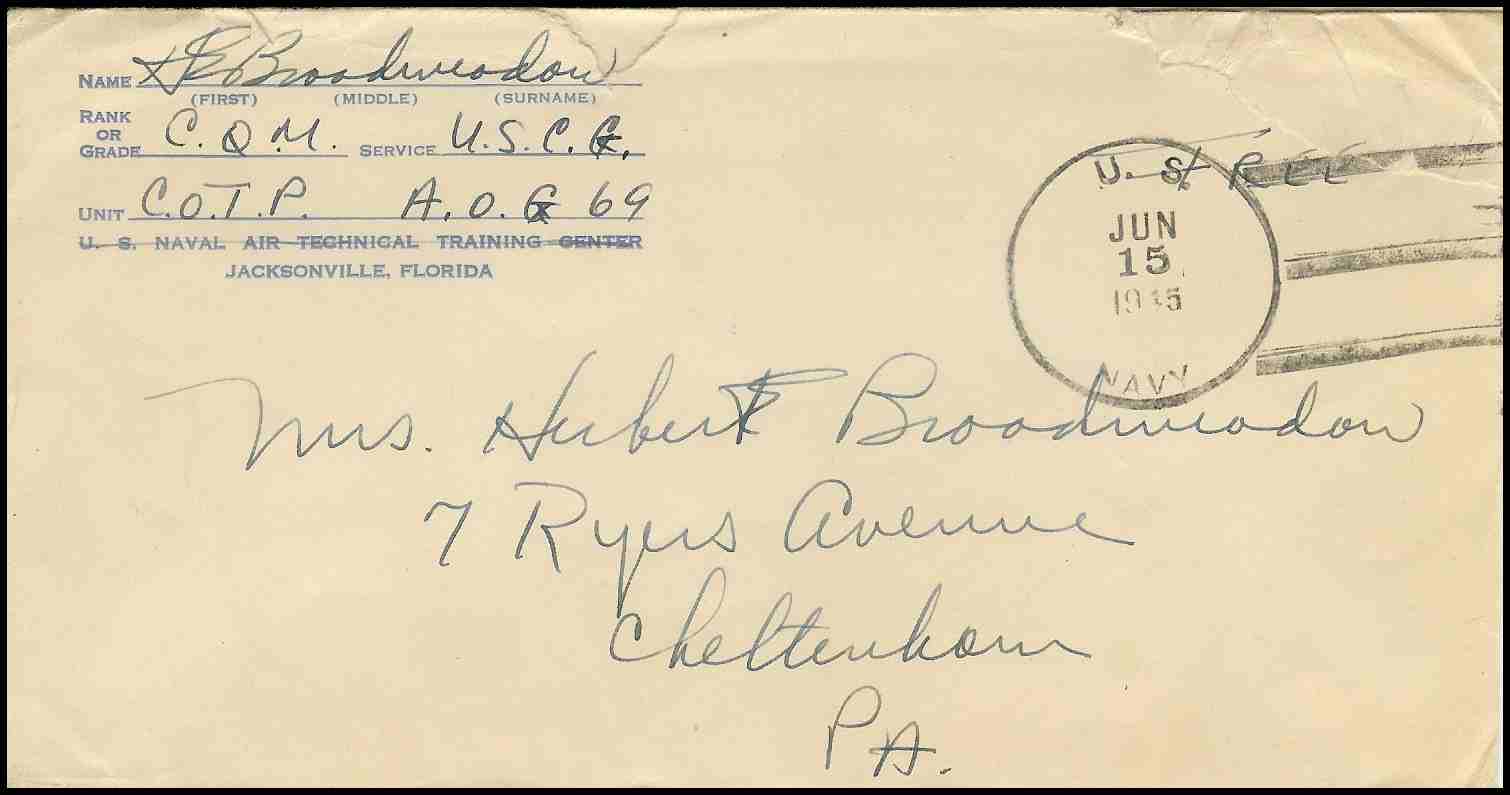 NAME H E Broadmeadow
(FIRST) (MIDDLE) (SURNAME)
RANK OR GRADE C.Q.M. SERVICE U.S.C.G.
UNIT C.O.T.P. A.O.G 69
U. S. NAVAL AIR TECHNICAL TRAINING CENTER
JACKSONVILLE, FLORIDA
U. S.
JUN
15
1945
NAVY
Free
Mrs. Herbert Broadmeadow
7 Ryers Avenue
Cheltenham
PA.